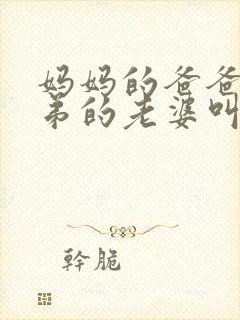 妈妈的爸爸
弟的老婆叫
幹脆